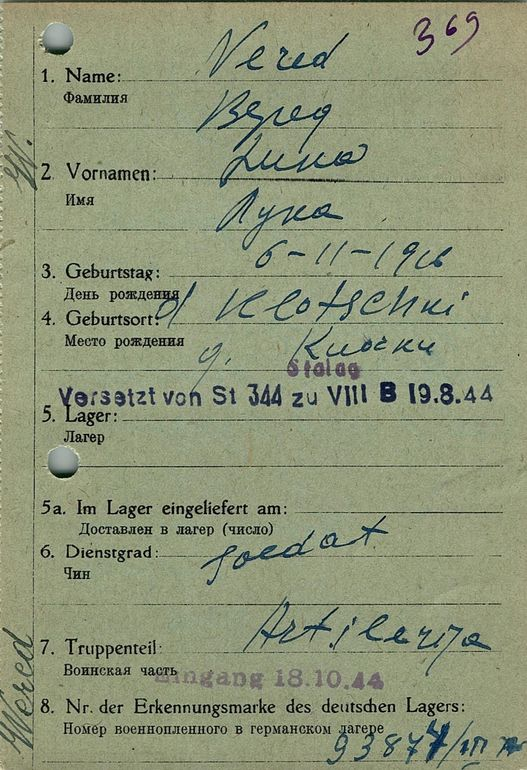 369
1. Name: Vered
Фамилия Веред
2. Vornamen: Luka
Имя Лука
3. Geburtstag: 6-11-1916
День рождения
4. Geburtsort: d Klotschki
Место рождения д. Клочки
Stalag
Versetzt von St 344 zu VIII B 19.8.44
5. Lager:
Лагер
5a. Im Lager eingeliefert am:
Доставлен в лагер (число)
6. Dienstgrad: soldat
Чин
7. Truppenteil: Artilerija
Воинская часть
Eingang 18.10.44
8. Nr. der Erkennungsmarke des deutschen Lagers:
Номер военнопленного в германском лагере
W.
Wered